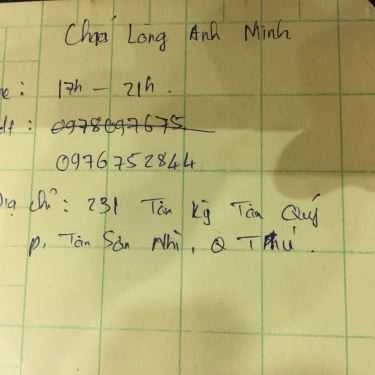 Cháo Lòng Anh Minh
e: 17h – 21h.
đt: 0978097675
0976752844
Địa chỉ: 231 Tân Kỳ Tân Quý
p. Tân Sơn Nhì, Q T Phú.